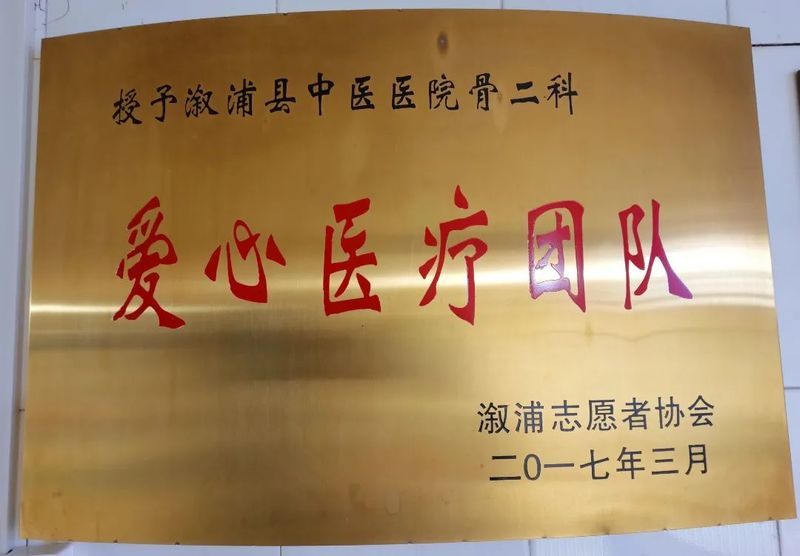 授予溆浦县中医医院骨二科
爱心医疗团队
溆浦志愿者协会
二O一七年三月